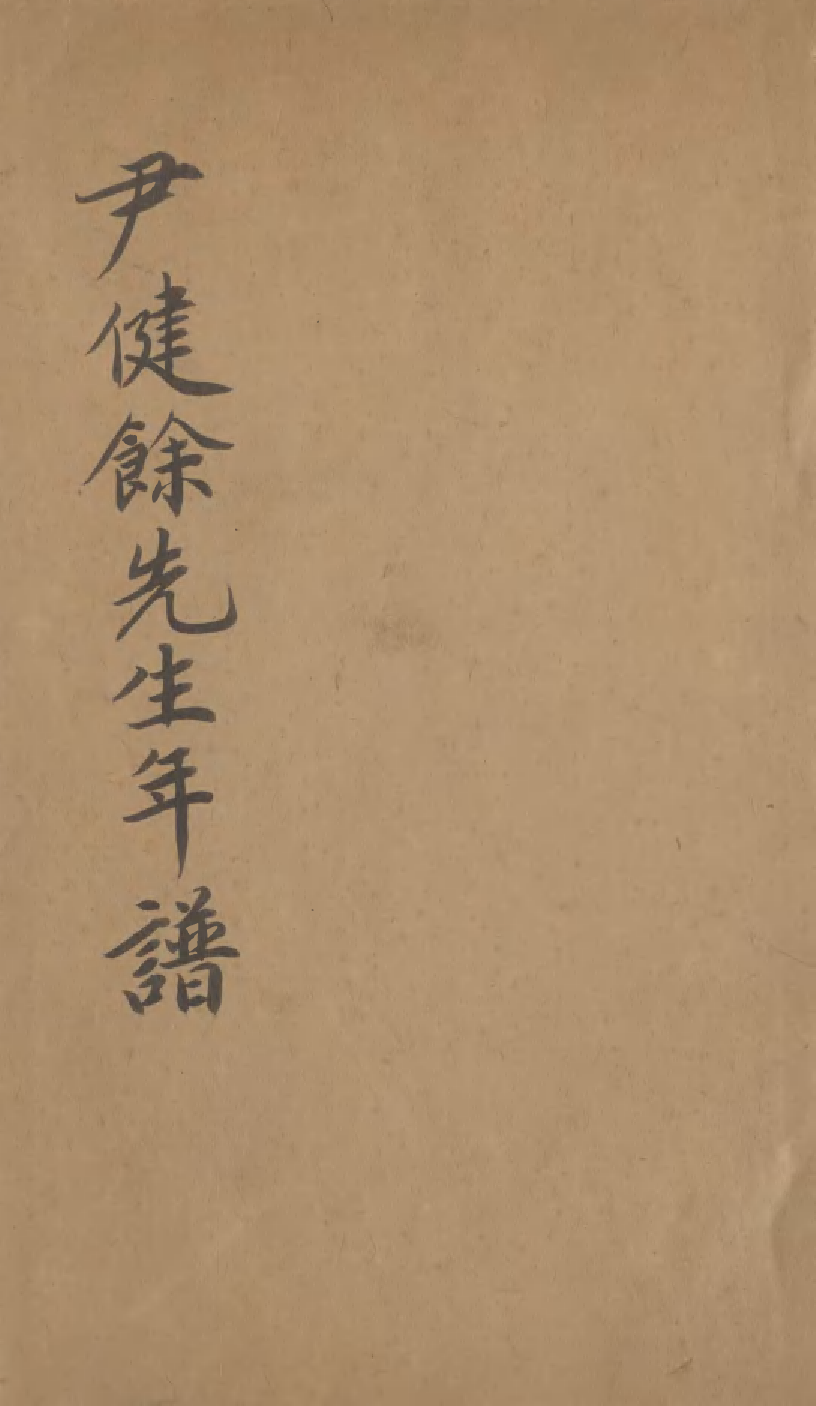 尹健餘先生年譜